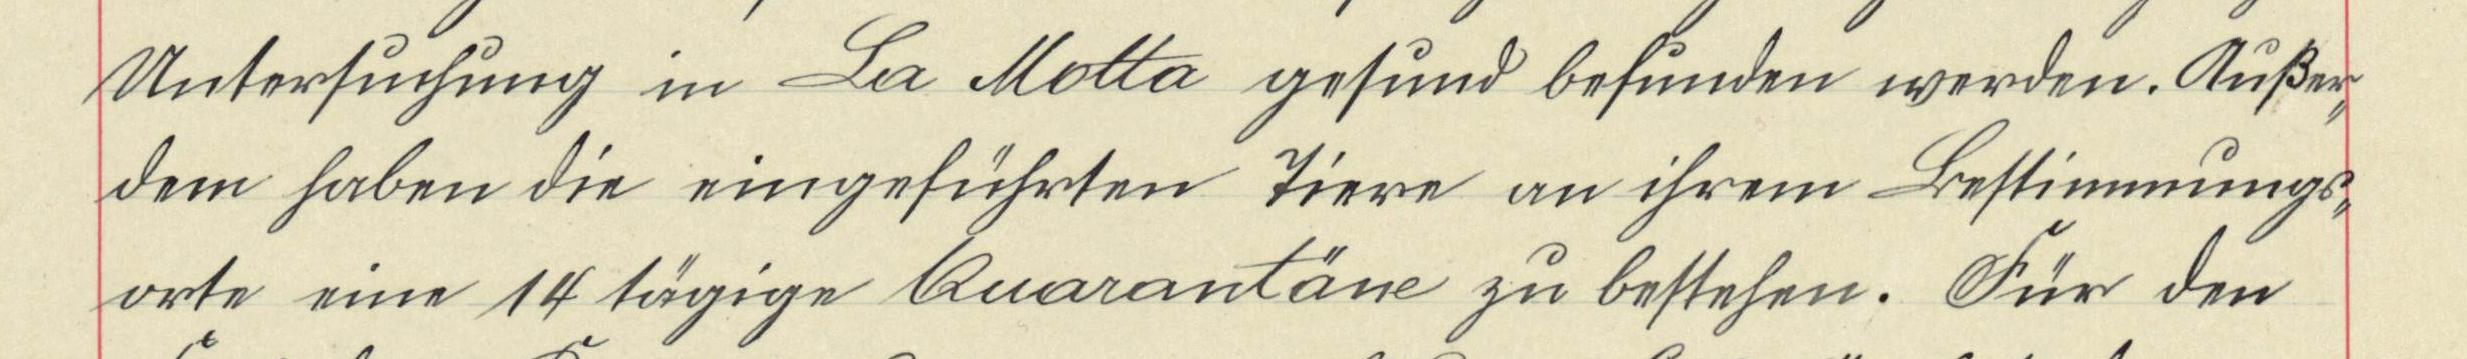 Untersuchung in La Motta gesund befunden werden. Außer„
dem haben die eingeführten Tiere an ihrem Bestimmungs„
orte eine 14 tägige Quarantäne zu bestehen. Für den